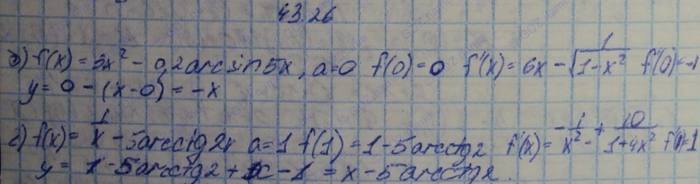 43.26
б) f(x) = 3x² - 0,2 arcsin 5x, a=0 f(0)=0 f'(x) = 6x - 1/√(1-x²) f'(0)=-1
y = 0 - (x-0) = -x
г) f(x) = 1/x - 5arcctg 2x a=1 f(1) = 1-5arcctg2 f'(x) = -1/x² + 10/(1+4x²) f'(1)=1
y = 1-5arcctg2 + x - 1 = x - 5arcctg2.